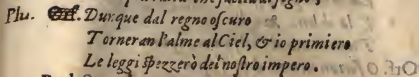 Plu. Orf. Dunque dal regno oscuro
Torneran l'alme al Ciel, & io primiero
Le leggi spezzerò del nostro impero.